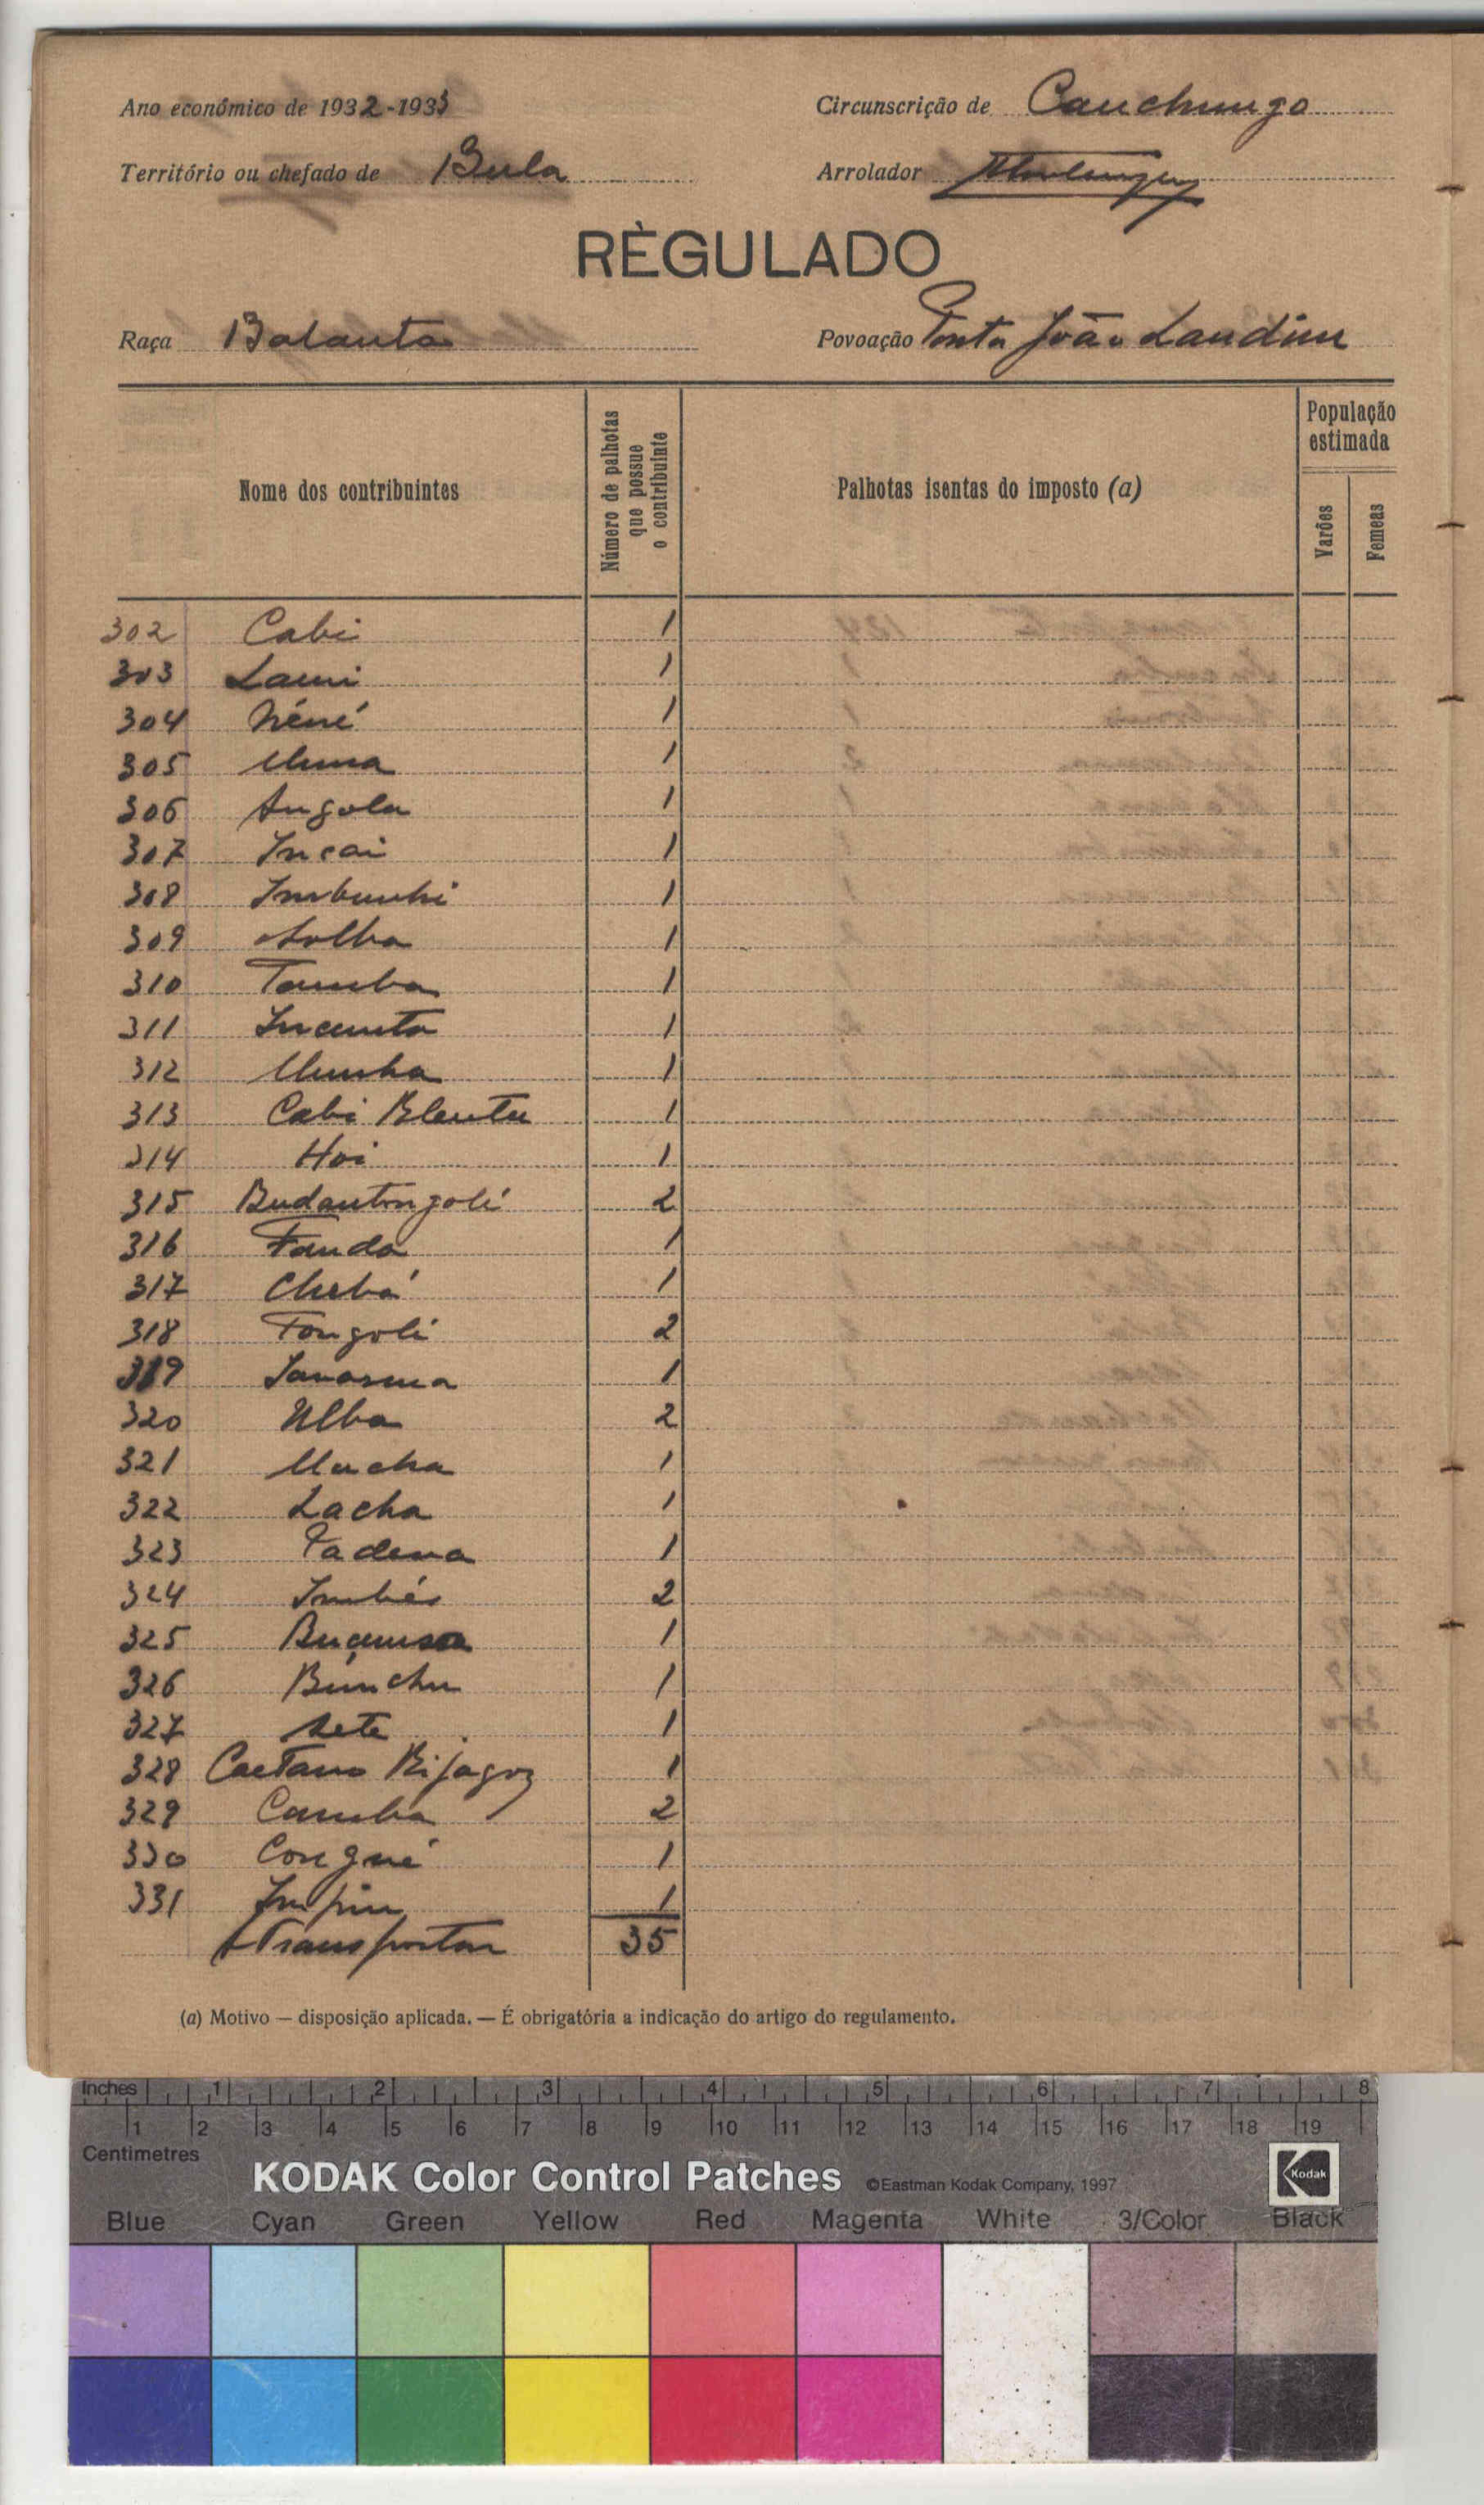 Ano económico de 1932-1933
Circunscrição de Canchungo
Território ou chefado de Bula
Arrolador
RÈGULADO
Raça Balanta
Povoação Ponta João Landim
Nome dos contribuintes
Número de palhotas que possue o contribuinte
Palhotas isentas do imposto (a)
População estimada
Varões
Femeas
302 Cabi 1
303 Lami 1
304 Néné 1
305 1
306 Angola 1
307 Incai 1
308 1
309 1
310 Tamba 1
311 1
312 1
313 Cabi 1
314 Hoi 1
315 2
316 Fanda 1
317 Chebá 1
318 Tongolé 2
319 1
320 Ulba 2
321 1
322 Lacha 1
323 1
324 2
325 1
326 1
327 Sete 1
328 Caetano Bijagoz 1
329 Camba 2
330 Congné 1
331 1
Transportar 35
(a) Motivo — disposição aplicada. — É obrigatória a indicação do artigo do regulamento.
Inches 1 2 3 4 5 6 7 8
1 2 3 4 5 6 7 8 9 10 11 12 13 14 15 16 17 18 19
Centimetres
KODAK Color Control Patches ©Eastman Kodak Company, 1997 Kodak
Blue Cyan Green Yellow Red Magenta White 3/Color Black